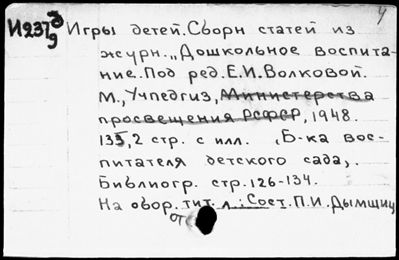 И237 д/9 Игры детей. Сборн статей из
журн. „Дошкольное воспита-
ние. Под ред. Е.И. Волковой.
М., Учпедгиз, Министерства
просвещения РСФСР, 1948.
135, 2 стр. с илл. „Б-ка вос-
питателя детского сада„.
Библиогр. стр. 126-134.
На овор. тит. л.: Сост. П.И. Дымшиц
от